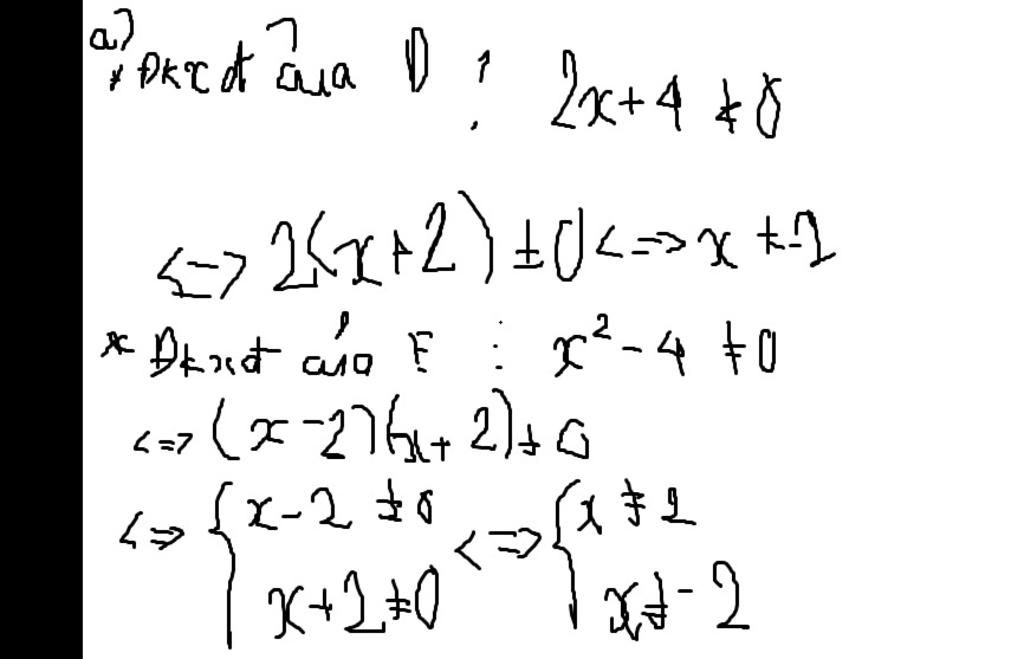 a)
* ĐKXĐ của D : 2x+4 ≠ 0
<=> 2(x+2) ≠ 0 <=> x ≠ -2
* ĐKXĐ của E : x² - 4 ≠ 0
<=> (x-2)(x+2) ≠ 0
<=> { x-2 ≠ 0 <=> { x ≠ 2
x+2 ≠ 0 x ≠ -2